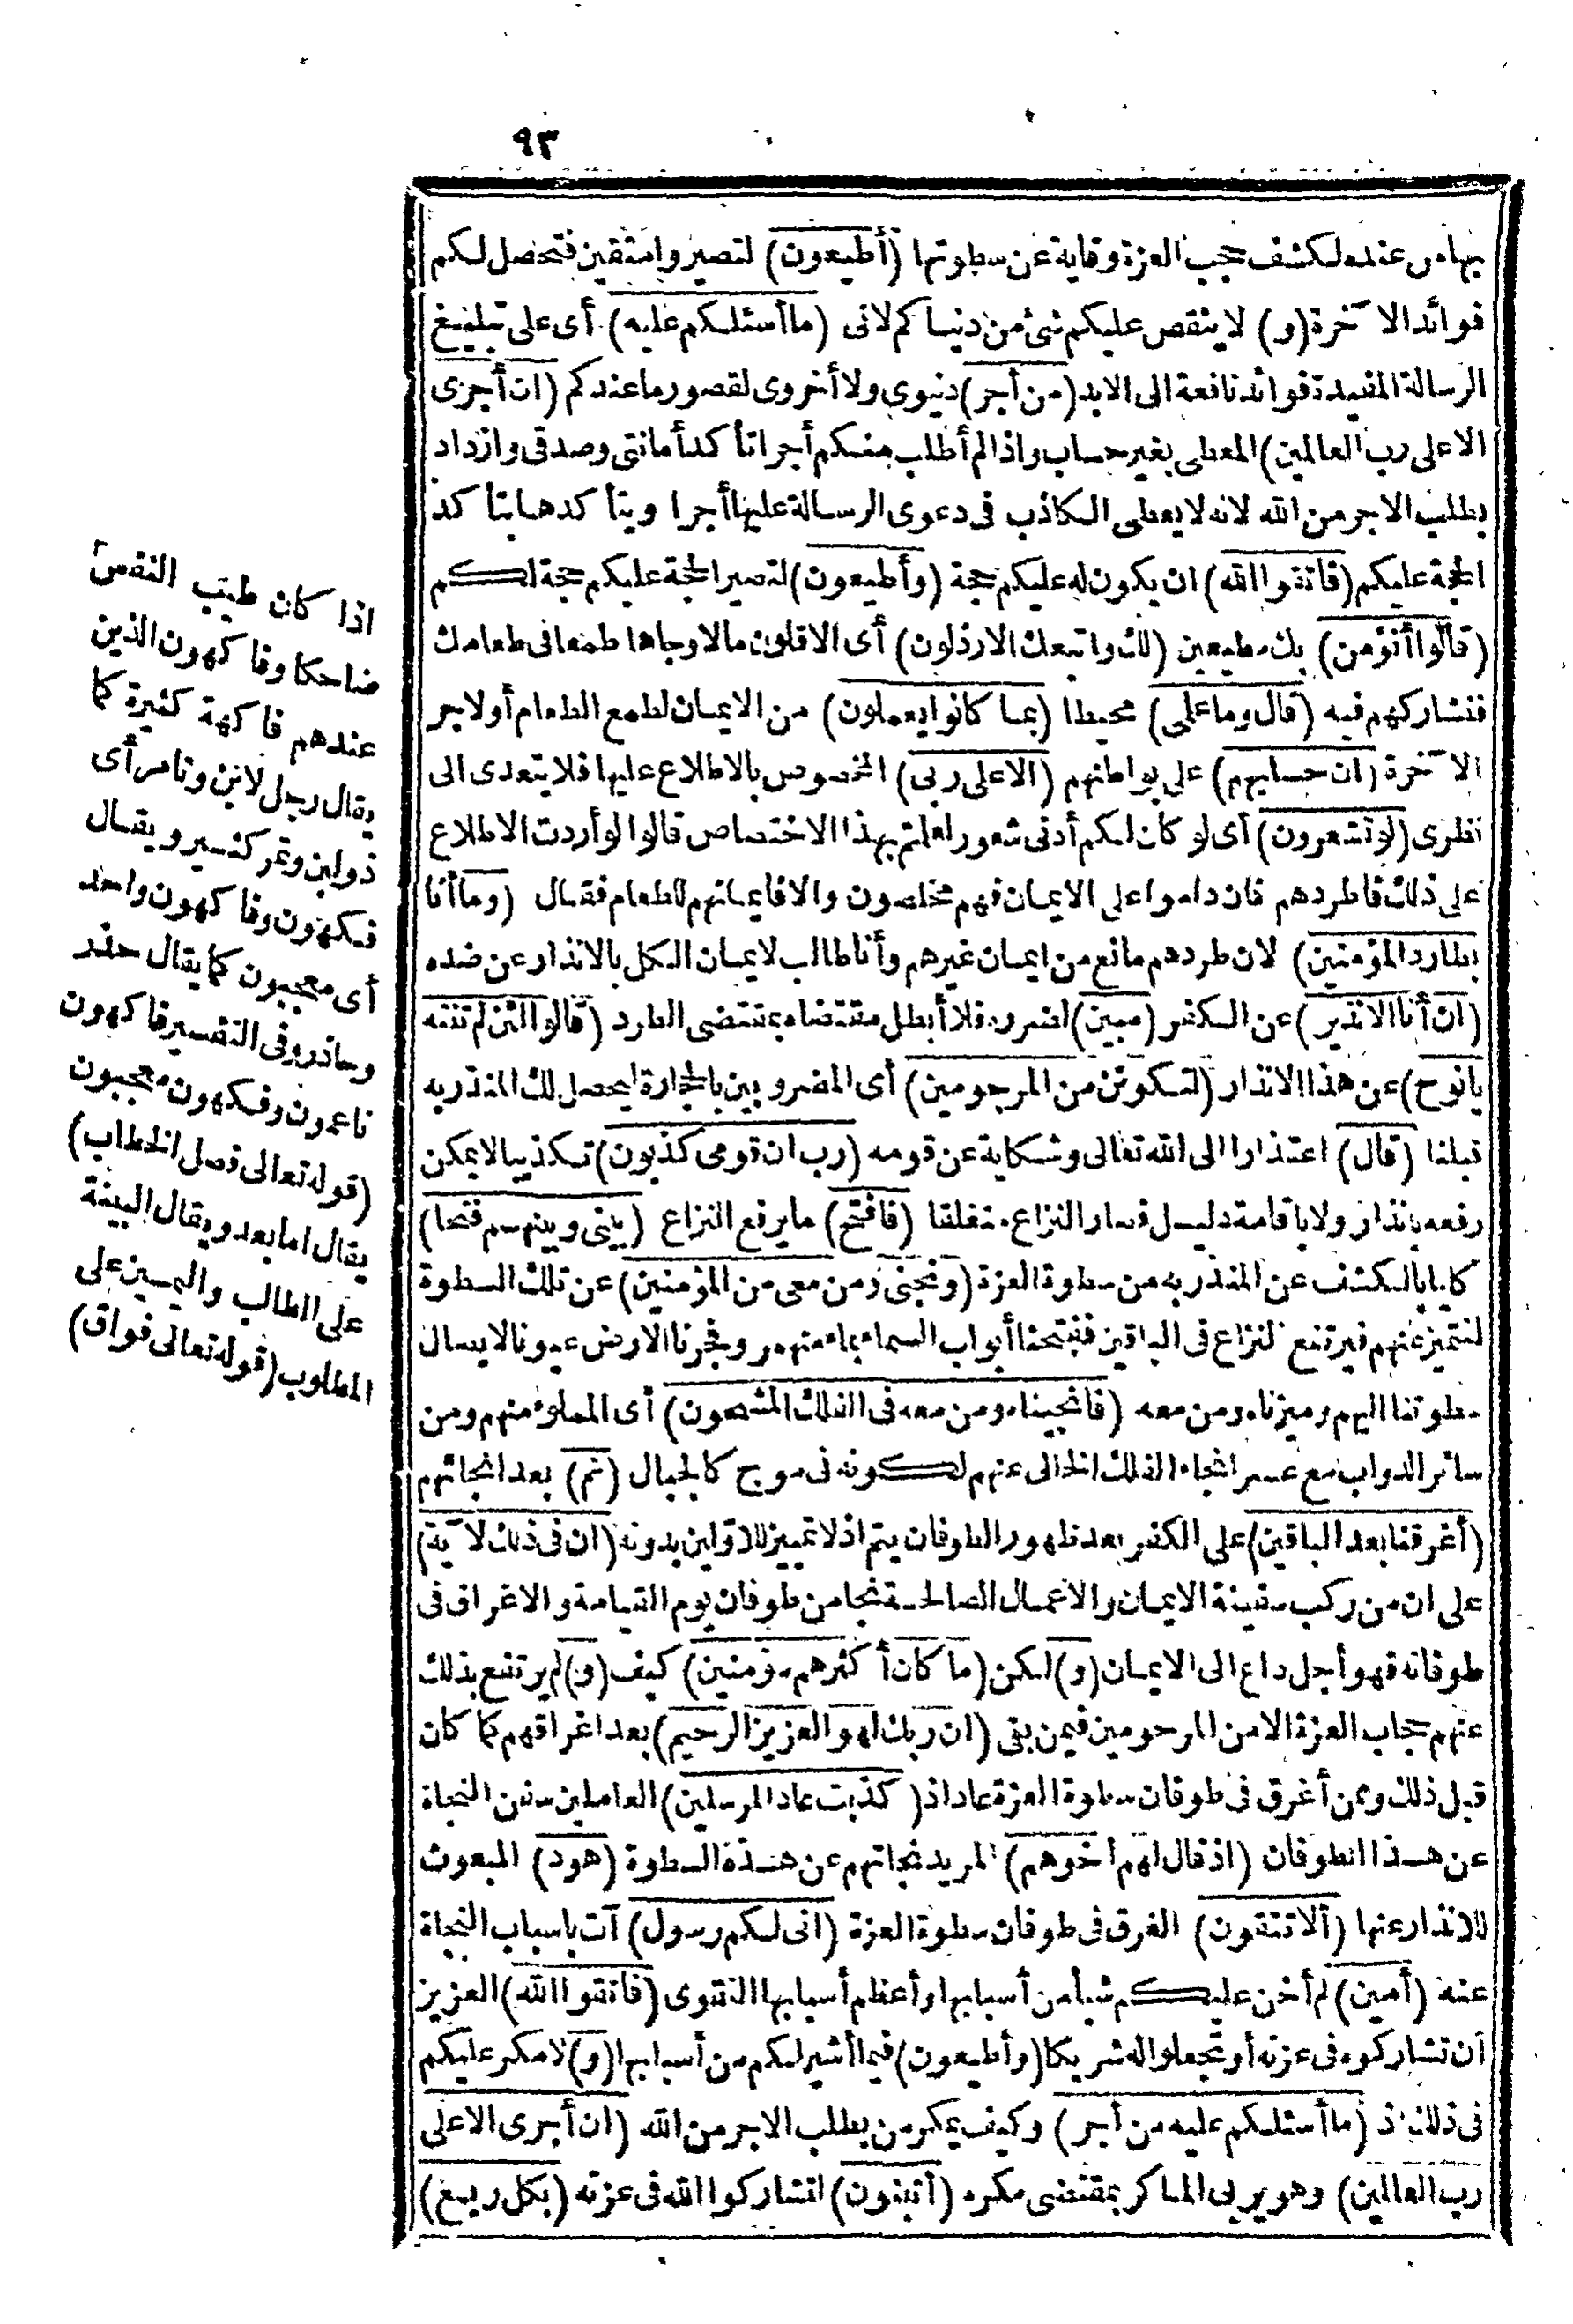 ٩٣
بها من عنده لكشف حجب العزة وقاية عن سطوتها (أطيعون) لتصيروا متقين فتحصل لكم
فوائد الا آخرة (و) لا ينقص عليكم شئ من دنياكم لانى (ما أسئلكم عليه) أى على تبليغ
الرسالة المفيدة فوائد نافعة الى الابد (من أجر) دنيوى ولا أخروى لقصور ما عندكم (ان أجرى
الا على رب العالمين) المعطى بغير حساب واذا لم أطلب منكم أجرا تأكد أمانتى وصدقى وازداد
بطلب الاجر من الله لانه لا يعطى الكاذب فى دعوى الرسالة عليها أجرا ويتأكدها بتأكد
الحجة عليكم (فاتقوا الله) ان يكون له عليكم حجة (وأطيعون) لتصير الحجة عليكم حجة لكم
(قالوا أنؤمن) بك مطيعين (لك واتبعك الارذلون) أى الاقلون مالا وجاها طمعا فى طعامك
فنشاركهم فيه (قال وما علمى) محيطا (بما كانوا يعملون) من الايمان لطمع الطعام أو لاجر
الا آخرة (ان حسابهم) على بواطنهم (الا على ربى) المخصوص بالاطلاع عليها فلا يتعدى الى
نظرى (لو تشعرون) أى لو كان لكم أدنى شعور لعلمتم بهذا الاختصاص قالوا لو أردت الاطلاع
على ذلك فاطردهم فان داموا على الايمان فهم مخلصون والا فايمانهم للطعام فقال (وما أنا
بطارد المؤمنين) لان طردهم مانع من ايمان غيرهم وأنا طالب لايمان الكل بالانذار عن ضده
(ان أنا الا نذير) عن الكفر (مبين) لضرره فلا أبطل مقتضاه بمقتضى الطرد (قالوا لئن لم تنته
يا نوح) عن هذا الانذار (لتكونن من المرجومين) أى المضروبين بالحجارة ليحصل لك المنذر به
قبلنا (قال) اعتذارا الى الله تعالى وشكاية عن قومه (رب ان قومى كذبون) تكذيبا لا يمكن
رفعه بانذار ولا باقامة دليل فصار النزاع منغلقا (فافتح) ما يرفع النزاع (بينى وبينهم فتحا)
كاملا بالكشف عن المنذر به من سطوة العزة (ونجنى ومن معى من المؤمنين) عن تلك السطوة
لنتميز عنهم فيرتفع النزاع فى الباقين ففتحنا أبواب السماء بماء منهمر وفجرنا الارض عيونا لايصال
سطوتنا اليهم وميزناه ومن معه (فانجيناه ومن معه فى الفلك المشحون) أى المملوء منهم ومن
سائر الدواب مع عسر انجاء الفلك الخالى عنهم لكونه فى موج كالجبال (ثم) بعد انجائهم
(أغرقنا بعد الباقين) على الكفر بعد ظهور الطوفان يتم اذ لا تمييز للاولين بدونه (ان فى ذلك لا آية)
على ان من ركب سفينة الايمان والاعمال الصالحة نجا من طوفان يوم القيامة والاغراق فى
طوفانه فهو أجل داع الى الايمان (و) لكن (ما كان أكثرهم مؤمنين) كيف (و) لم يرتفع بذلك
عنهم حجاب العزة الا من المرحومين فيمن بقى (ان ربك لهو العزيز الرحيم) بعد اغراقهم كما كان
قبل ذلك وممن أغرق فى طوفان سطوة العزة عاد اذ (كذبت عاد المرسلين) العاملين سفن النجاة
عن هذا الطوفان (اذ قال لهم أخوهم) المريد نجاتهم عن هذه السطوة (هود) المبعوث
للانذار عنها (ألا تتقون) الغرق فى طوفان سطوة العزة (انى لكم رسول) آت باسباب النجاة
عنه (أمين) لم أخن عليكم شيأ من أسبابها وأعظم أسبابها التقوى (فاتقوا الله) العزيز
أن تشاركوه فى عزته أو تجعلوا له شريكا (وأطيعون) فيما أشير لكم من أسبابها (و) لا مكر عليكم
فى ذلك اذ (ما أسئلكم عليه من أجر) وكيف يمكر من يطلب الاجر من الله (ان أجرى الا على
رب العالمين) وهو يربى الماكر بمقتضى مكره (أتبنون) لتشاركوا الله فى عزته (بكل ريع)
اذا كان طيب النفس
ضاحكا وفاكهون الذين
عندهم فاكهة كثيرة كما
يقال رجل لابن وتامر أى
ذو لبن وتمر كثير ويقال
فكهون وفاكهون واحد
أى معجبون كما يقال حذر
وحاذر وفى التفسير فاكهون
ناعمون وفكهون معجبون
(قوله تعالى فصل الخطاب)
يقال اما بعد ويقال البينة
على الطالب واليمين على
المطلوب (قوله تعالى فواق)